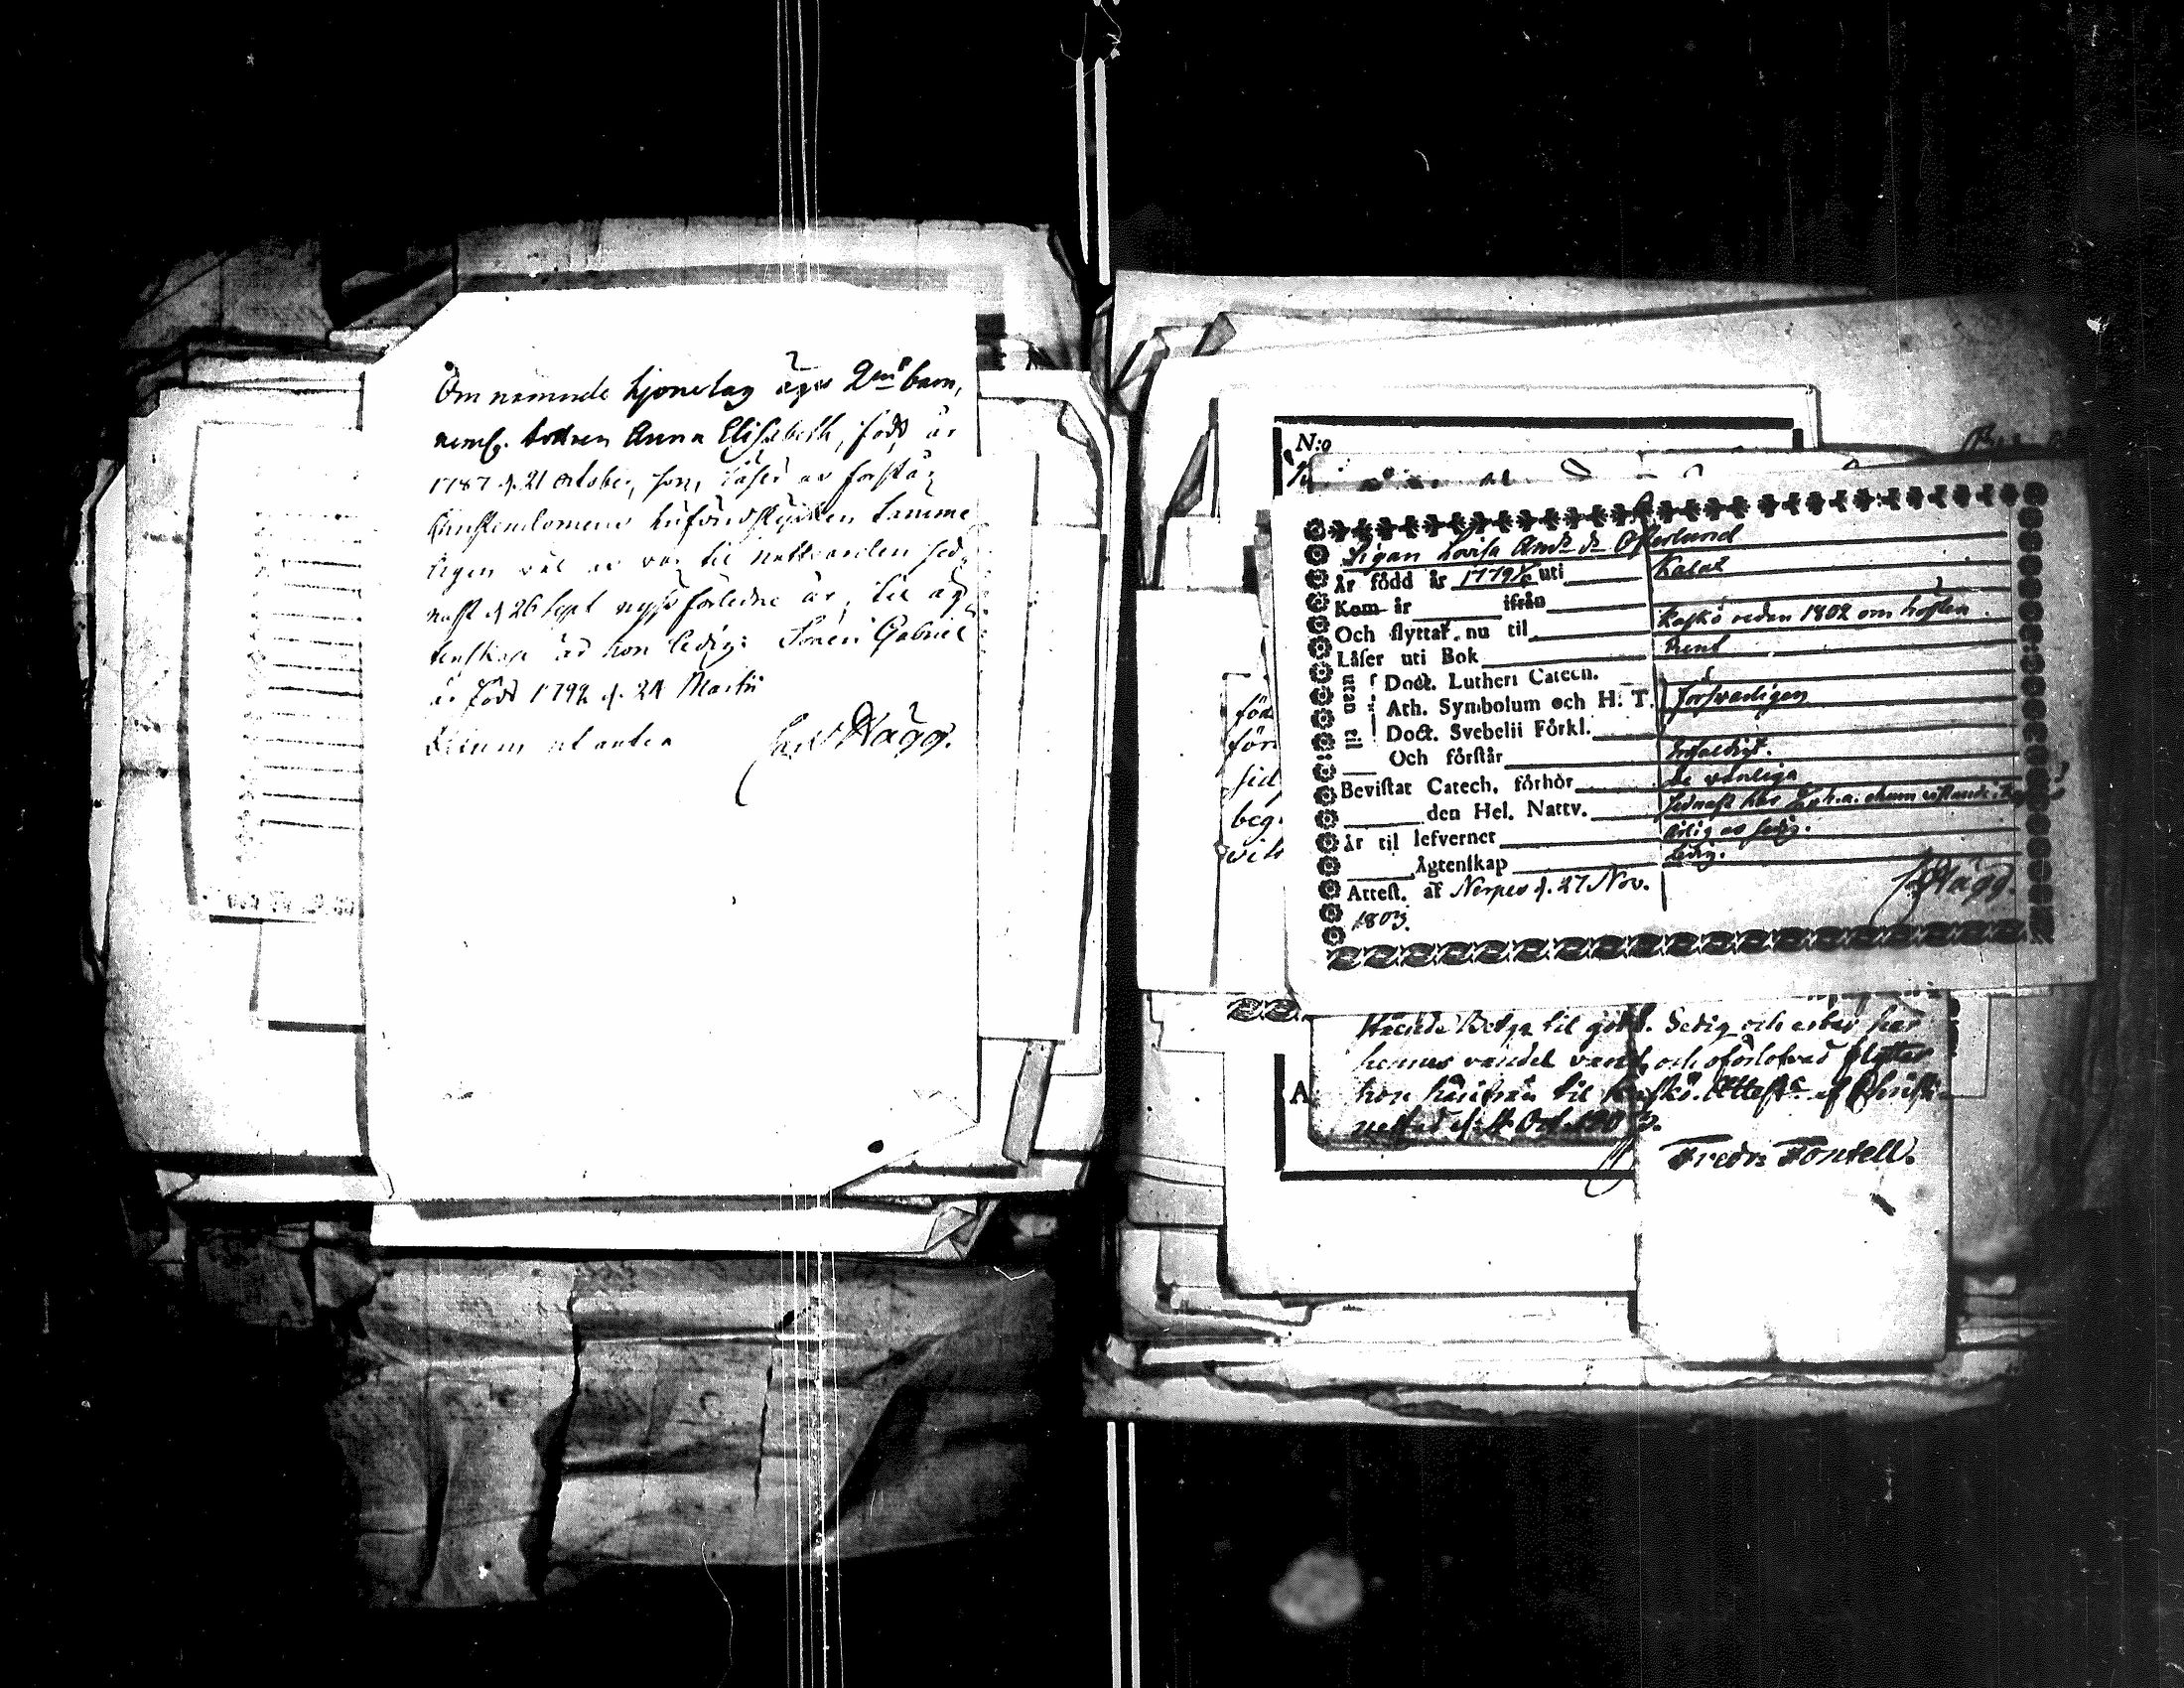 Om nämnde hjonelag äger 2ne barn,
neml. dottren Anna Elisabeth, född år
1787 d. 21 October, hon, läser och förstår
Christendomens hufvudstycken tämme
ligen väl och var til nattvarden sed
nast d 26 Sept nyss förledne år, til äg
tenskap är hon ledig: Sonen Gabriel
är född 1792 d. 24 Martii
Datum ut antea Carl Hägg.
N:o
Pigan Lovisa And:dr Österlund
År född år 1779 uti Kalax
Kom år ifrån
Och flyttar nu til Kaskö redan 1802 om hösten.
Läser uti Bok Rent
utan til
Doct. Lutheri Catech.
Ath. Symbolum och H. T. försvarligen
Doct. Svebelii Förkl.
Och förstår Enfaldigt.
Bevistat Catech. förhör de vanliga
den Hel. Nattv. sednast här
år til lefvernet ärlig och sedig.
Ägtenskap ledig.
Attest. af Nerpes d. 27 Nov.
1803. Hägg.
för
för
sid
beg
A
til godo. Sedig och ärbar har
hennes vandel varit, och oförlofvad flyttar
hon härifrån til Kaskö. Attest. af Christi
nestad d. 4 Oct. 1803.
Fredr. Fontell.